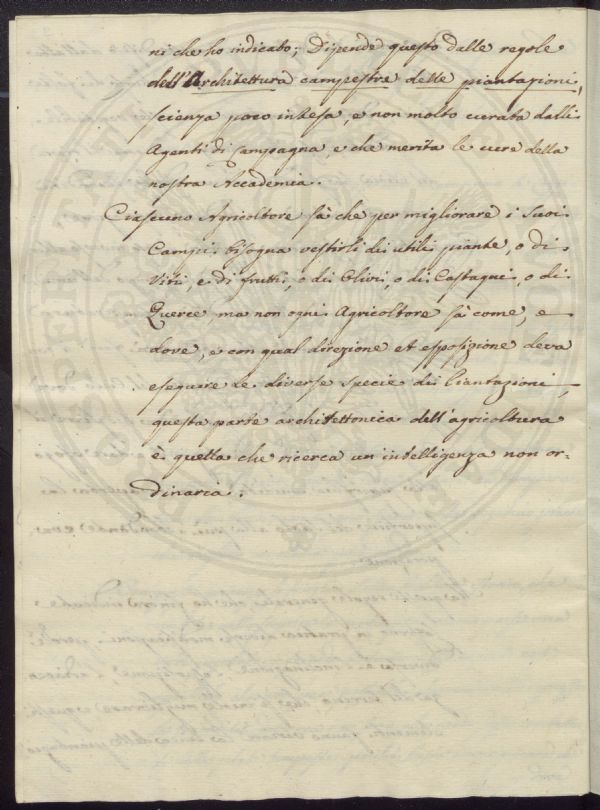 ni che ho indicato; Dipende questo dalle regole
dell'Architettura campestre delle piantazioni,
scienza poco intesa, e non molto curata dalli
Agenti di Campagna, e che merita le cure della
nostra Accademia.
Ciascuno Agricoltore sà che per migliorare i suoi
Campi bisogna vestirli di utili piante, o di
Viti, e di frutti, o di Olivi, o di Castagni, o di
Querce, ma non ogni Agricoltore sà come, e
dove, e con qual direzione et esposizione deva
eseguire le diverse specie di Piantazioni,
questa parte architettonica dell'agricoltura
è quella che ricerca un intelligenza non or-
dinaria.